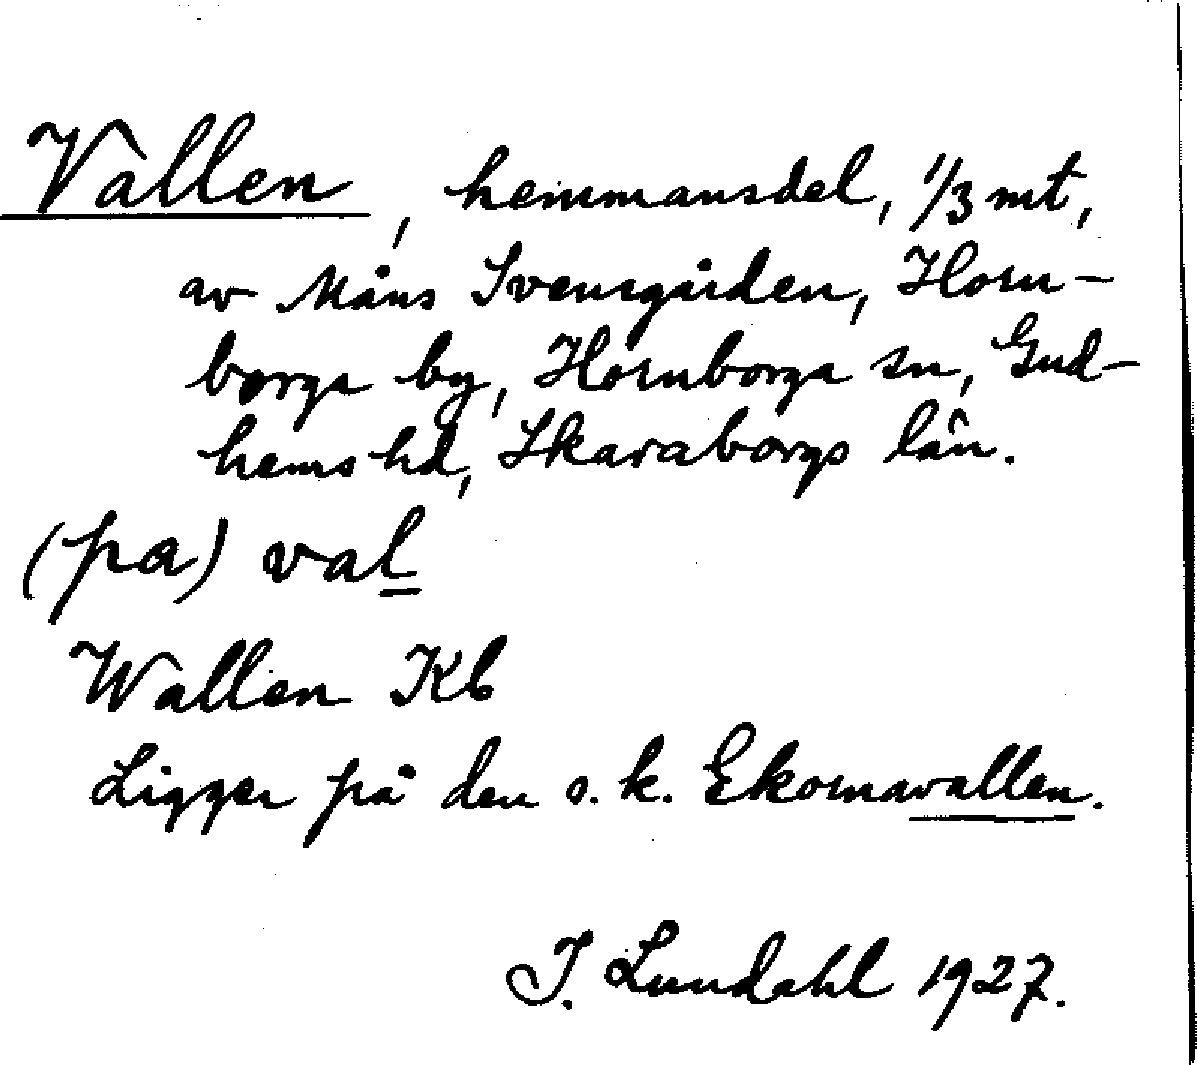 Vallen, hemmansdel, 1/3 mt,
av Måns Svensgården, Horn-
borga by, Hornborga sn, Gud-
hems hd, Skaraborgs län.
(pa) val
Wallen Kb
Ligger på den s.k. Ekornavallen.
I. Lundahl 1927.